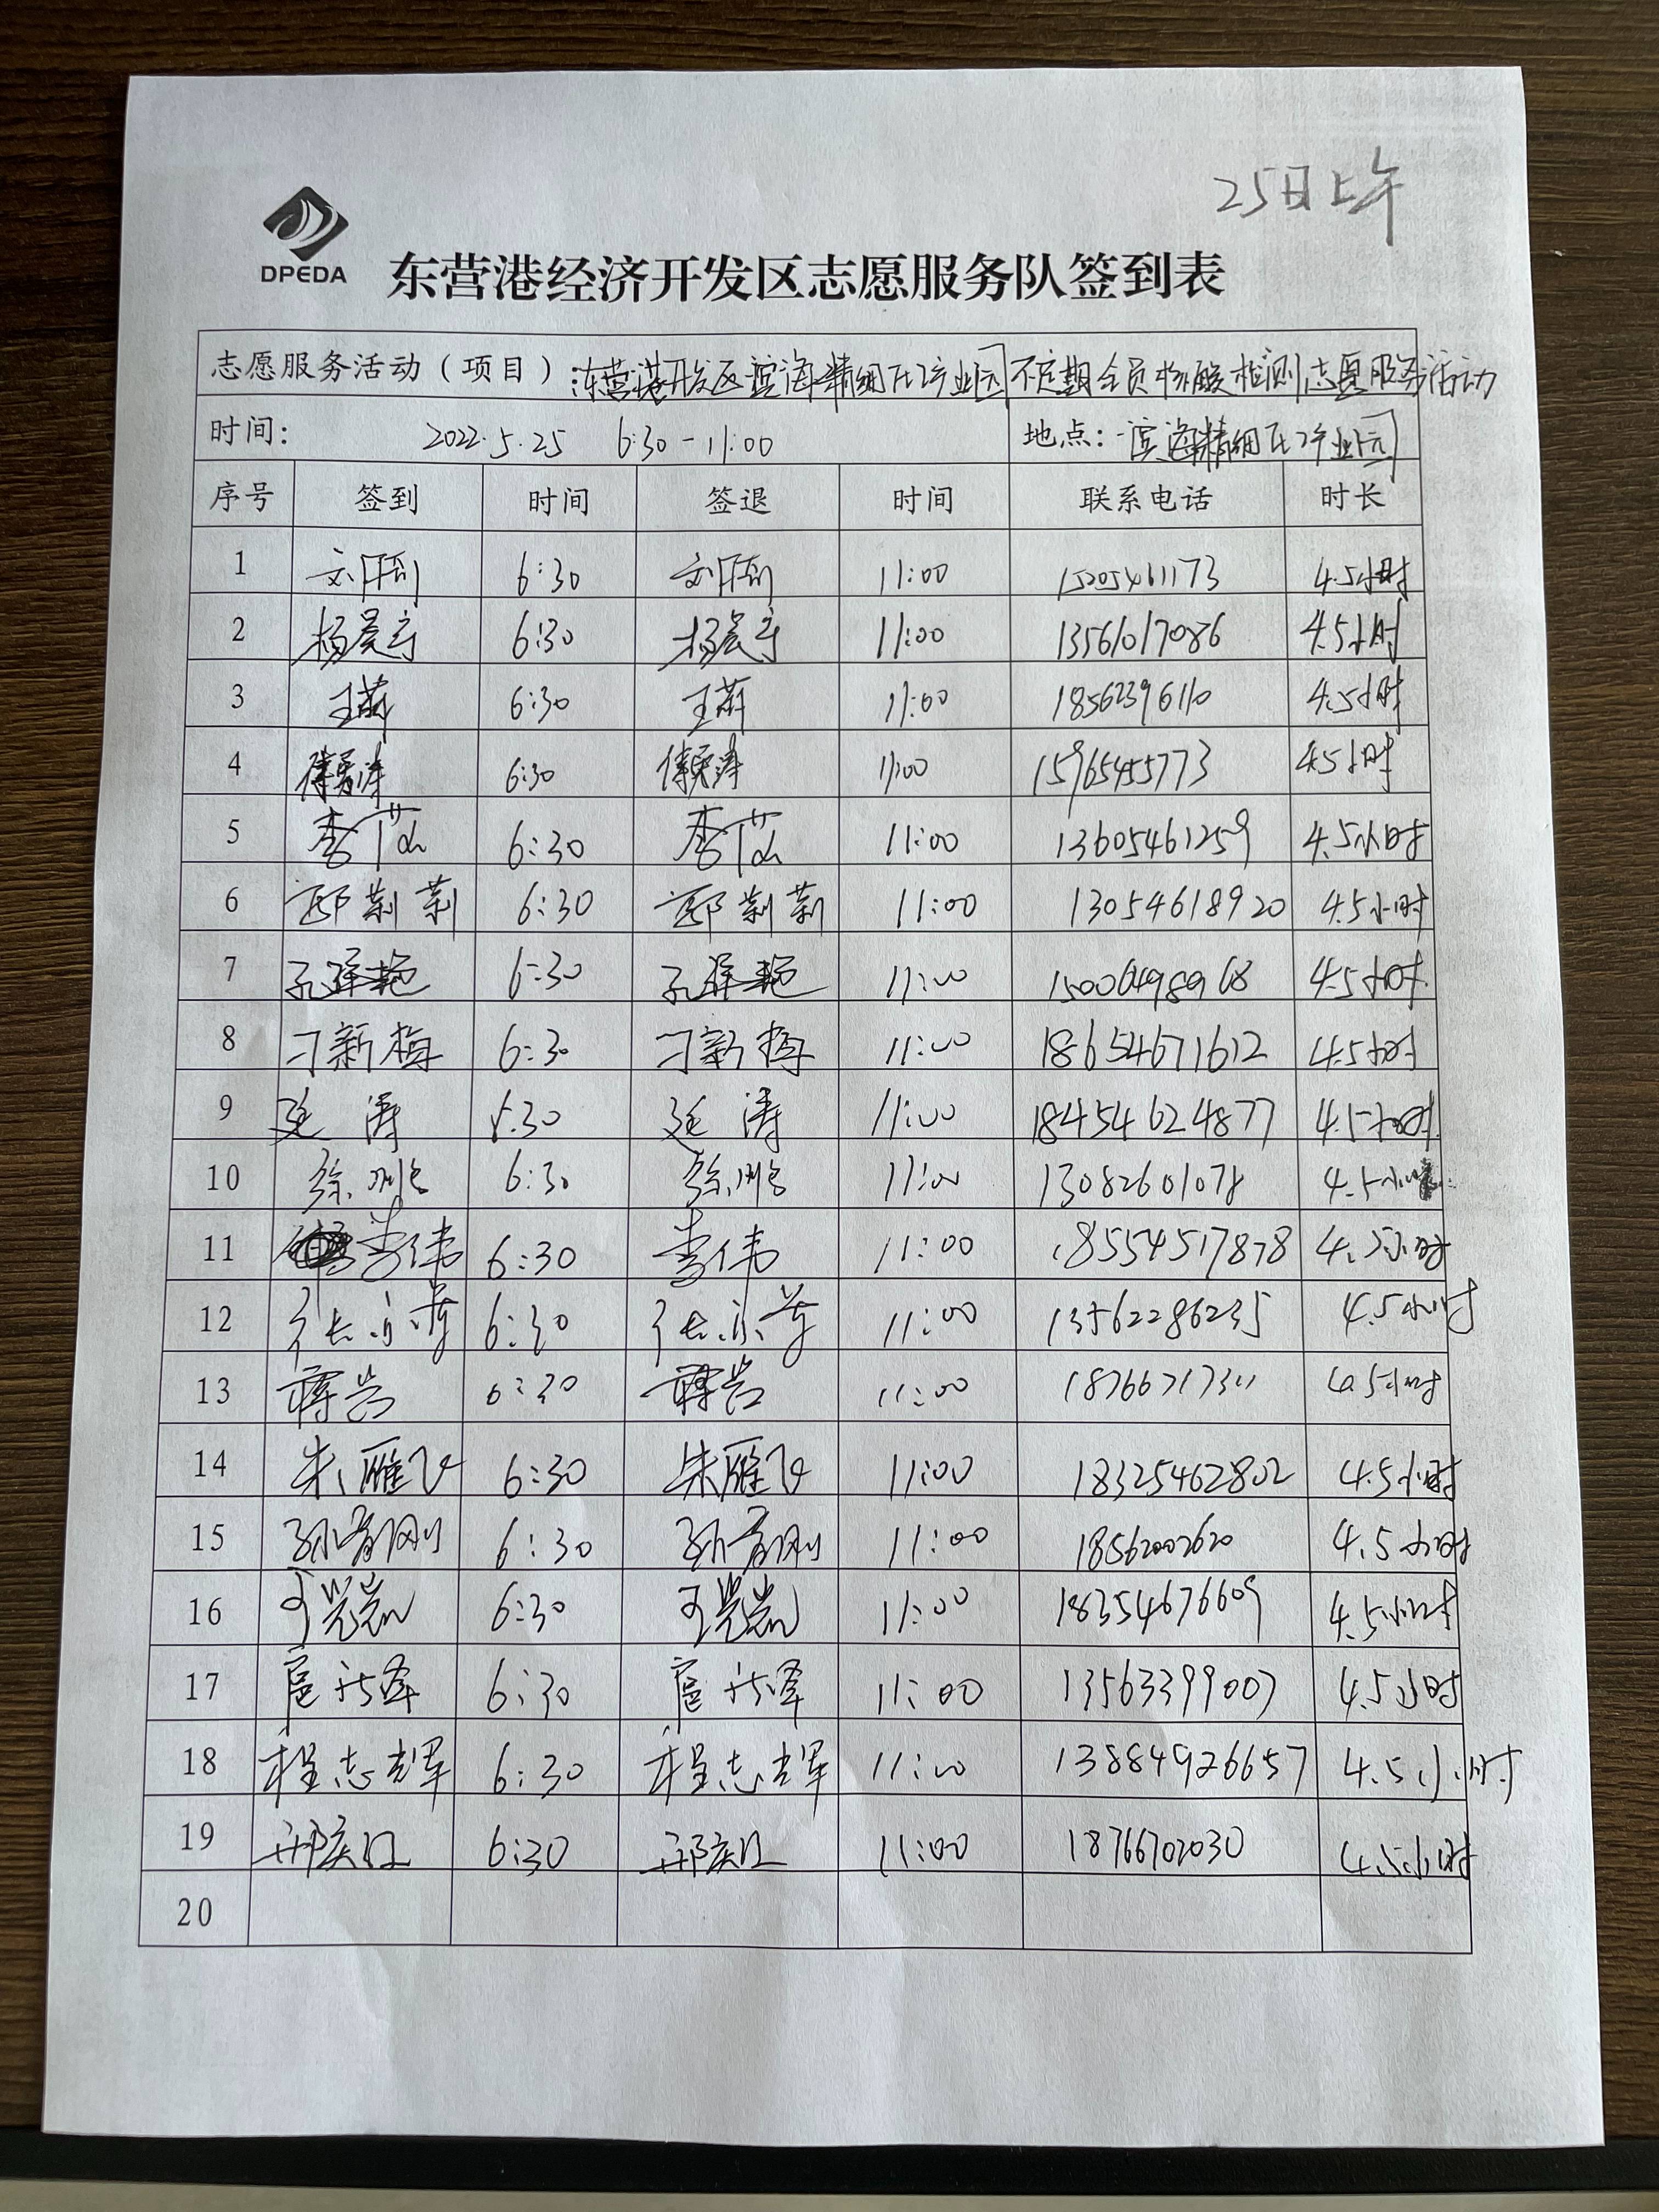 25日上午
DPEDA
东营港经济开发区志愿服务队签到表
志愿服务活动（项目）：东营港开发区滨海精细化工产业园不定期全员核酸检测志愿服务活动
时间： 2022.5.25 6:30-11:00 地点：滨海精细化工产业园
序号 签到 时间 签退 时间 联系电话 时长
1 6:30 11:00 15205461173 4.5小时
2 杨晨宇 6:30 杨晨宇 11:00 13561017086 4.5小时
3 王萧 6:30 王萧 11:00 18562396110 4.5小时
4 6:30 11:00 15965455773 4.5小时
5 李 6:30 李 11:00 13605461259 4.5小时
6 邸莉莉 6:30 邸莉莉 11:00 13054618920 4.5小时
7 6:30 11:00 15006498968 4.5小时
8 刁新梅 6:30 刁新梅 11:00 18654671612 4.5小时
9 延涛 6:30 延涛 11:00 18454624877 4.5小时
10 徐鹏 6:30 徐鹏 11:00 13082601078 4.5小时
11 李伟 6:30 李伟 11:00 18554517878 4.5小时
12 6:30 11:00 13562286235 4.5小时
13 蒋岩 6:30 蒋岩 11:00 18766717311 4.5小时
14 朱雁飞 6:30 朱雁飞 11:00 18325462802 4.5小时
15 6:30 11:00 18562002620 4.5小时
16 6:30 11:00 18354676609 4.5小时
17 6:30 11:00 13563399007 4.5小时
18 程志辉 6:30 程志辉 11:00 13884926657 4.5小时
19 6:30 11:00 18766702030 4.5小时
20